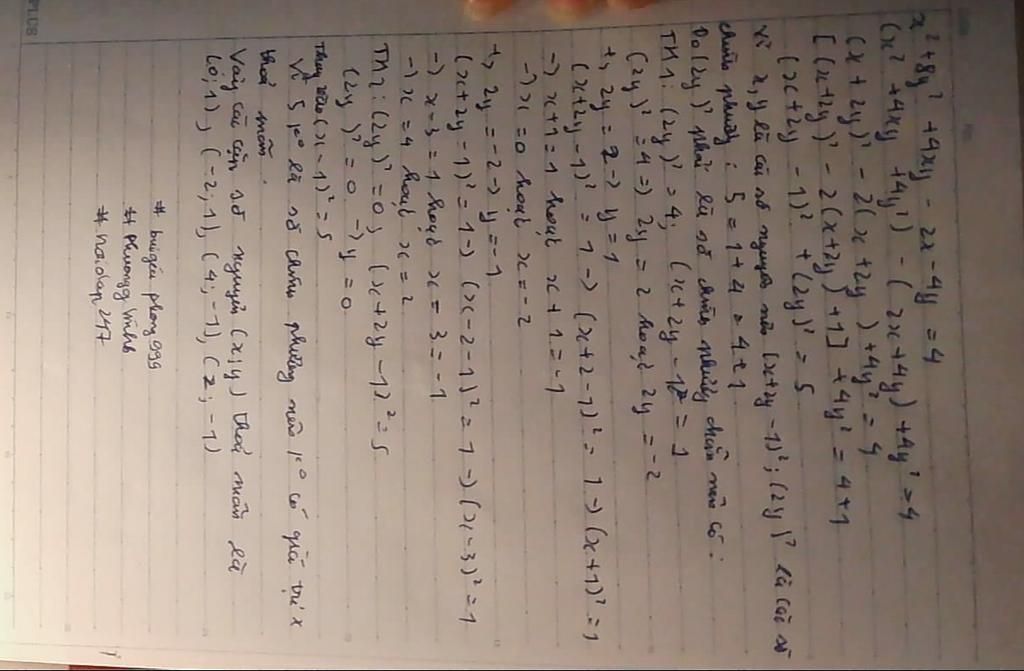 x² + 8y² + 4xy - 2x - 4y = 4
(x² + 4xy + 4y²) - (2x + 4y) + 4y² = 4
(x + 2y)² - 2(x + 2y) + 4y² = 4
[(x + 2y)² - 2(x + 2y) + 1] + 4y² = 4 + 1
(x + 2y - 1)² + (2y)² = 5
Vì x, y là các số nguyên nên (x + 2y - 1)²; (2y)² là các số
chính phương: 5 = 1 + 4 = 4 + 1
Do (2y)² phải là số chính phương chẵn nên có:
TH1: (2y)² = 4; (x + 2y - 1)² = 1
(2y)² = 4 => 2y = 2 hoặc 2y = -2
+, 2y = 2 -> y = 1
(x + 2y - 1)² = 1 -> (x + 2 - 1)² = 1 -> (x + 1)² = 1
-> x + 1 = 1 hoặc x + 1 = -1
-> x = 0 hoặc x = -2
+, 2y = -2 -> y = -1
(x + 2y - 1)² = 1 -> (x - 2 - 1)² = 1 -> (x - 3)² = 1
-> x - 3 = 1 hoặc x - 3 = -1
-> x = 4 hoặc x = 2
TH2: (2y)² = 0; (x + 2y - 1)² = 5
(2y)² = 0 -> y = 0
Thay vào (x - 1)² = 5
Vì 5 ko là số chính phương nên ko có giá trị x
thoả mãn.
Vậy các cặp số nguyên (x; y) thoả mãn là
(0; 1), (-2; 1), (4; -1), (2; -1)
# buiquu phong999
# phuong linhh
# hoidap 247